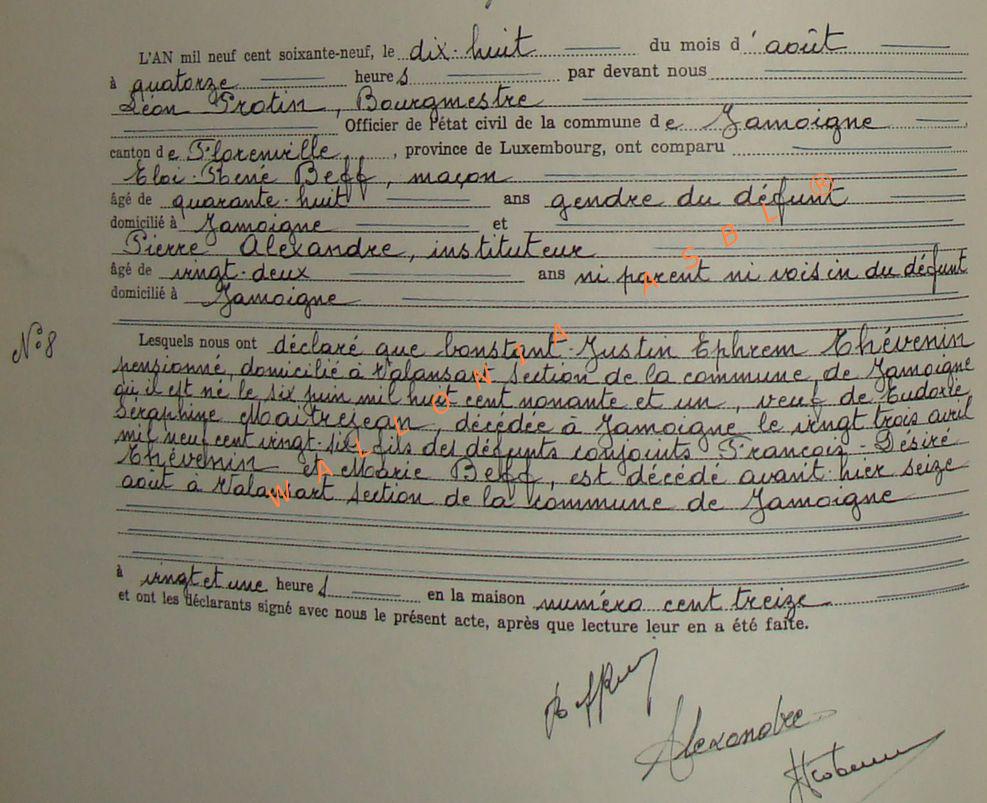 L'AN mil neuf cent soixante-neuf, le dix-huit du mois d'août
à quatorze heures par devant nous
Léon Protin, Bourgmestre
Officier de l'état civil de la commune de Jamoigne
canton de Florenville, province de Luxembourg, ont comparu
Eloi-René Beff, maçon
âgé de quarante-huit ans gendre du défunt
domicilié à Jamoigne et
Pierre Alexandre, instituteur
âgé de vingt-deux ans ni parent ni voisin du défunt
domicilié à Jamoigne
N° 8
Lesquels nous ont déclaré que Constant-Justin Ephrem Thévenin
pensionné, domicilié à Valansart section de la commune de Jamoigne
où il est né le six juin mil huit cent nonante et un, veuf de Eudoxie
Séraphine Maitrejean, décédée à Jamoigne le vingt trois avril
mil neuf cent vingt-six, fils des défunts conjoints François-Désiré
Thévenin et Marie Beff, est décédé avant hier seize
août à Valansart section de la commune de Jamoigne
à vingt et une heures en la maison numéro cent treize
et ont les déclarants signé avec nous le présent acte, après que lecture leur en a été faite.
Alexandre
WALLONIA ASBL ®